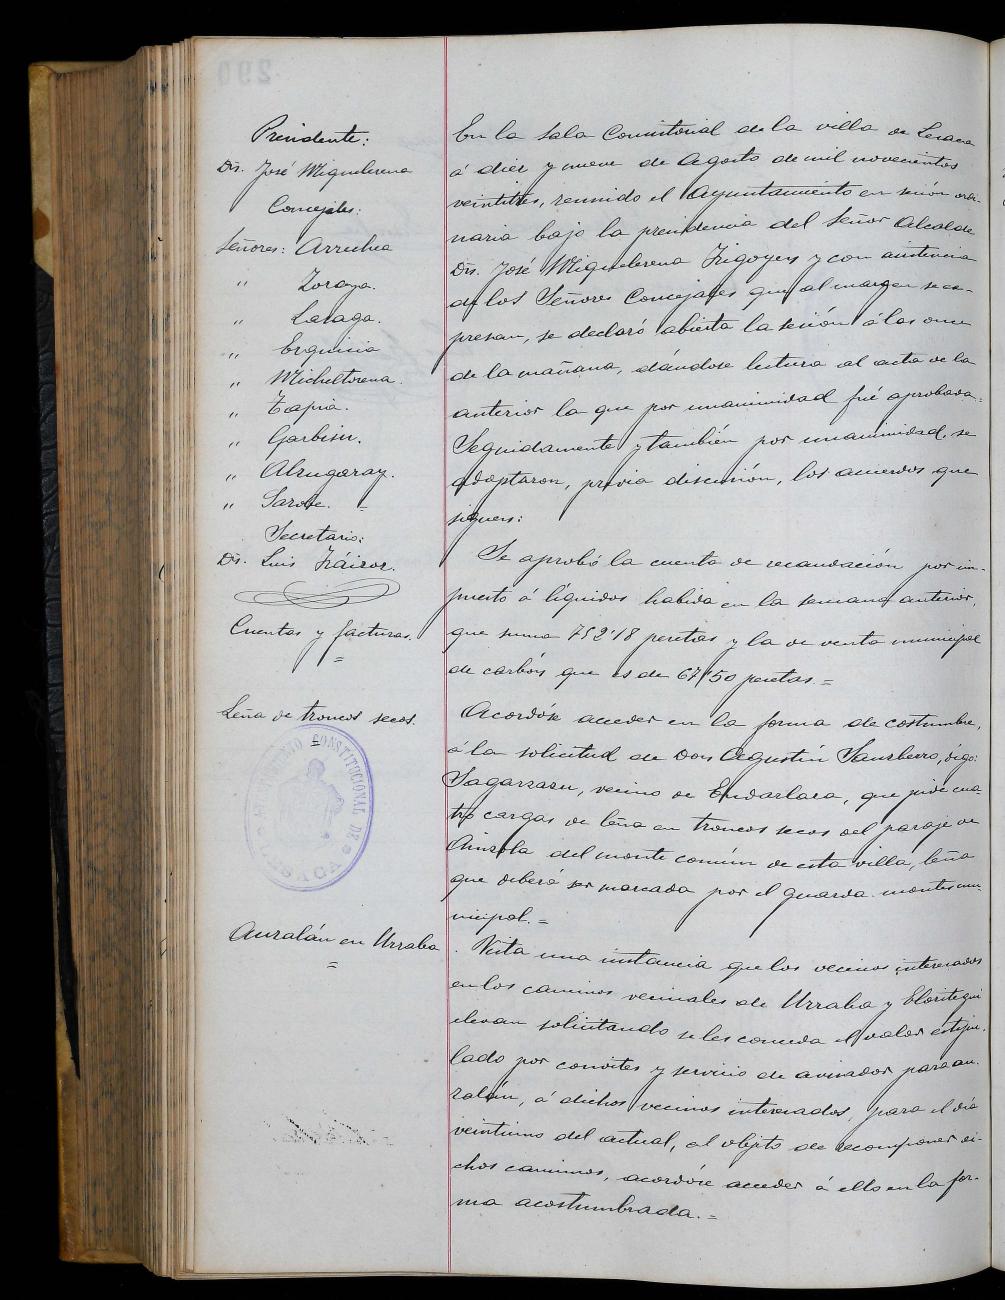 Presidente:
Dn. José Miguelerena
Concejales:
Señores: Arrechea
" Zoraya.
" Lasaga.
" Erquicia
" Micheltorena.
" Tapia.
" Garbisu.
" Alzugaray.
" Sarobe. =
Secretario:
Dn. Luis Iráizoz.
Cuentas y facturas.
=
Leña de troncos secos.
=
AYUNTAMIENTO CONSTITUCIONAL DE
LESACA
Auzalán en Urraba
=
En la sala Consistorial de la villa de Lesaca
á diez y nueve de Agosto de mil novecientos
veintitres, reunido el Ayuntamiento en sesión ordi-
naria bajo la presidencia del Señor Alcalde
Dn. José Miguelerena Irigoyen y con asistencia
de los Señores Concejales que al margen se ex-
presan, se declaró abierta la sesión á las once
de la mañana, dándose lectura al acta de la
anterior la que por unanimidad fué aprobada=
Seguidamente y también por unanimidad, se
adoptaron, previa discusión, los acuerdos que
siguen:
Se aprobó la cuenta de recaudación por im-
puesto á líquidos habida en la semana anterior,
que suma 752'18 pesetas y la de venta municipal
de carbón que es de 67'50 pesetas.=
Acordóse acceder en la forma de costumbre,
á la solicitud de Don Agustín Sanzberro, digo:
Sagarzazu, vecino de Endarlaza, que pide cua-
tro cargas de leña en troncos secos del paraje de
del monte común de esta villa, leña
que deberá ser marcada por el guarda montes mu-
nicipal.=
Vista una instancia que los vecinos interesados
en los caminos vecinales de Urraba y Eloritegui
elevan solicitando se les conceda el valor estipu-
lado por convites y servicio de avisador para au-
zalán, á dichos vecinos interesados, para el día
veintiuno del actual, al objeto de recomponer di-
chos caminos, acordóse acceder á ello en la for-
ma acostumbrada.=
290